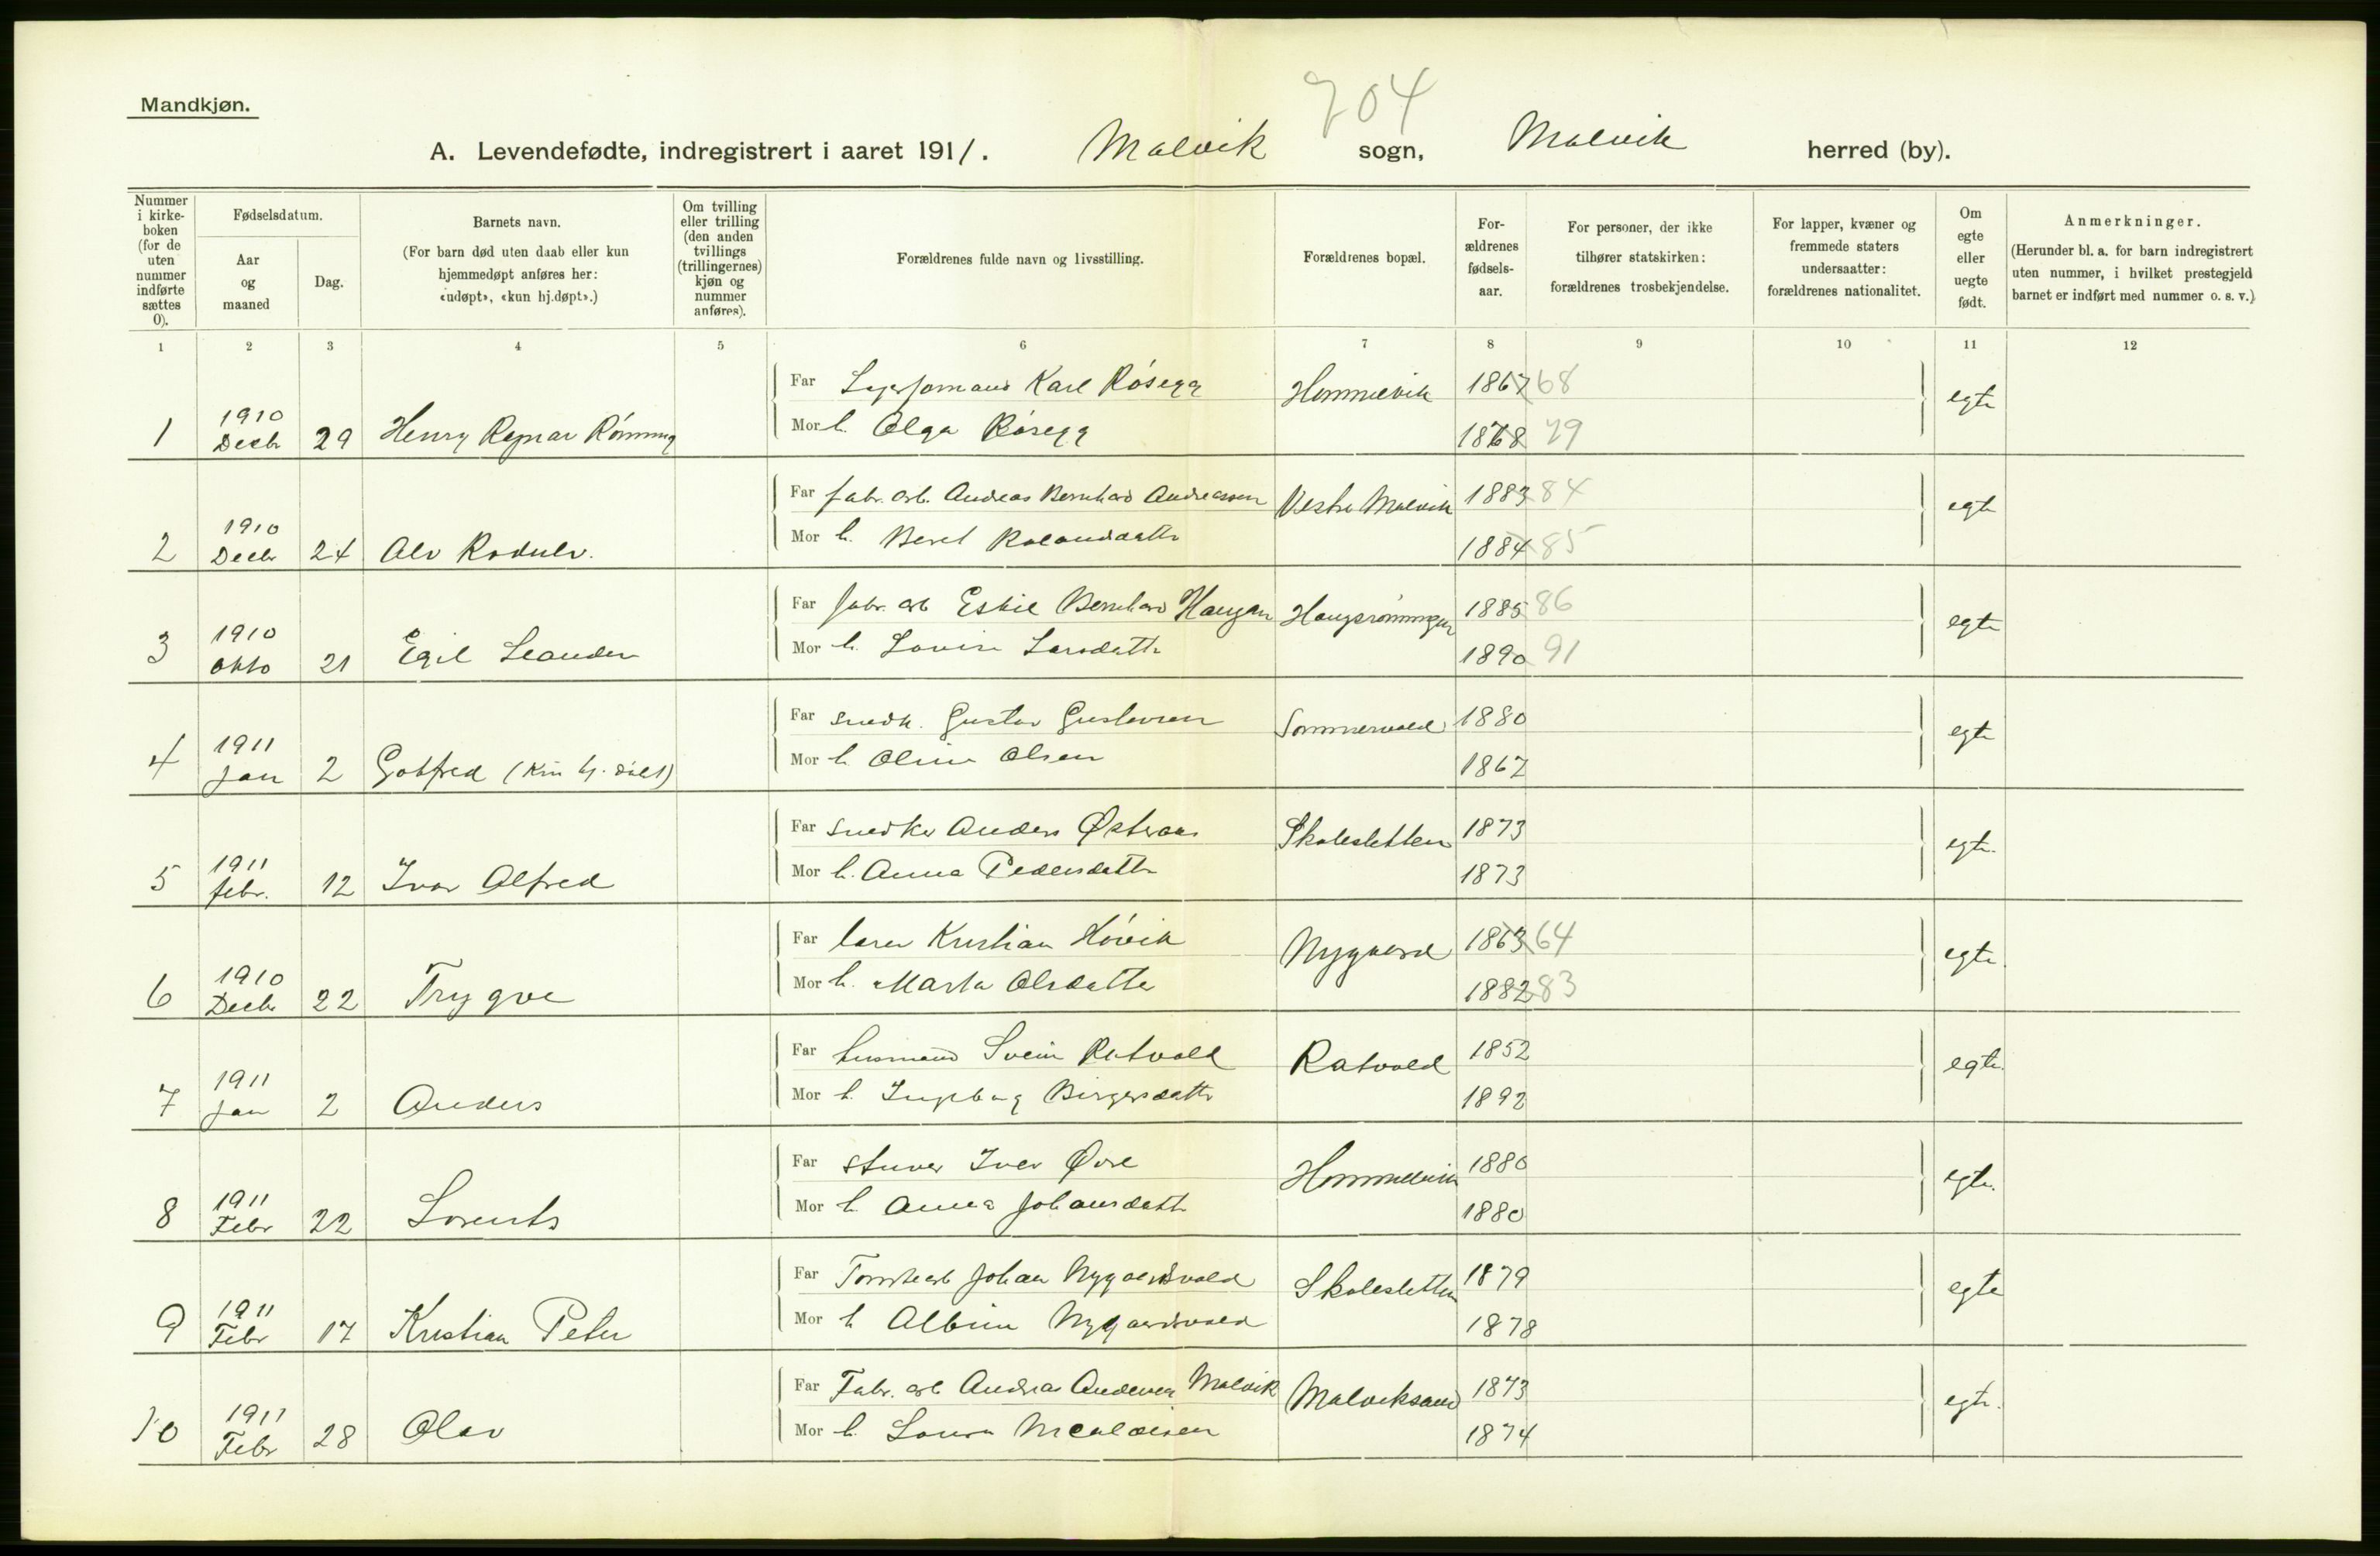 Mandkjøn.
704
A. Levendefødte, indregistrert i aaret 1911. Malvik sogn, Malvik herred (by).
Nummer i kirke- boken (for de uten nummer indførte sættes 0).
Fødselsdatum.
Aar og maaned
Dag.
Barnets navn.
(For barn død uten daab eller kun hjemmedøpt anføres her: «udøpt», «kun hj.døpt».)
Om tvilling eller trilling (den anden tvillings (trillingernes) kjøn og nummer anføres).
Forældrenes fulde navn og livsstilling.
Forældrenes bopæl.
For- ældrenes fødsels- aar.
For personer, der ikke tilhører statskirken: forældrenes trosbekjendelse.
For lapper, kvæner og fremmede staters undersaatter: forældrenes nationalitet.
Om egte eller uegte født.
Anmerkninger.
(Herunder bl. a. for barn indregistrert uten nummer, i hvilket prestegjeld barnet er indført med nummer o. s. v.)
1 2 3 4 5 6 7 8 9 10 11 12
Far Karl Røsegg Hommelvik 1867 68 egte
1 1910 Decbr 29 Henry Ragnar Mor h. Olga Røsegg 1878 79
Far fabr. arb. Andreas Bernhard Andreassen Vestre Malvik 1883 84 egte
2 1910 Decbr 24 Alv Rodulv. Mor h. Beret 1884 85
Far fabr. arb Eskil Bernhard Haugan 1885 86 egte
3 1910 Okto 21 Egil Leander Mor h. Lovise Larsdatter 1890 91
Far snedk. Gustav Gustavsen Sommervold 1880 egte
4 1911 Jan 2 Gotfred (Kun hj. døbt) Mor h. Oline Olsen 1867
Far snedker Anders Østeraas Skolesletten 1873 egte.
5 1911 febr. 12 Ivar Alfred Mor h. Anna Pedersdatter 1873
Far lærer Kristian Høvik Nygaard 1863 64 egte
6 1910 Decbr 22 Trygve Mor h. Marta Olsdatter 1882 83
Far husmand Svein Ratvold Ratvold 1852 egte.
7 1911 Jan 2 Anders Mor h. Ingeborg Birgersdatter 1892
Far stuver Iver Øvre Hommelvik 1880 egte.
8 1911 Febr 22 Lorents Mor h. Anna Johansdatter 1880
Far Johan Nygaardsvold Skolesletten 1879 egte
9 1911 Febr 17 Kristian Peter Mor h Albine Nygaardsvold 1878
Far Fabr. arb Andreas Andersen Malvik Malviksand 1873 egte.
10 1911 Febr 28 Olav Mor h. Laura 1874